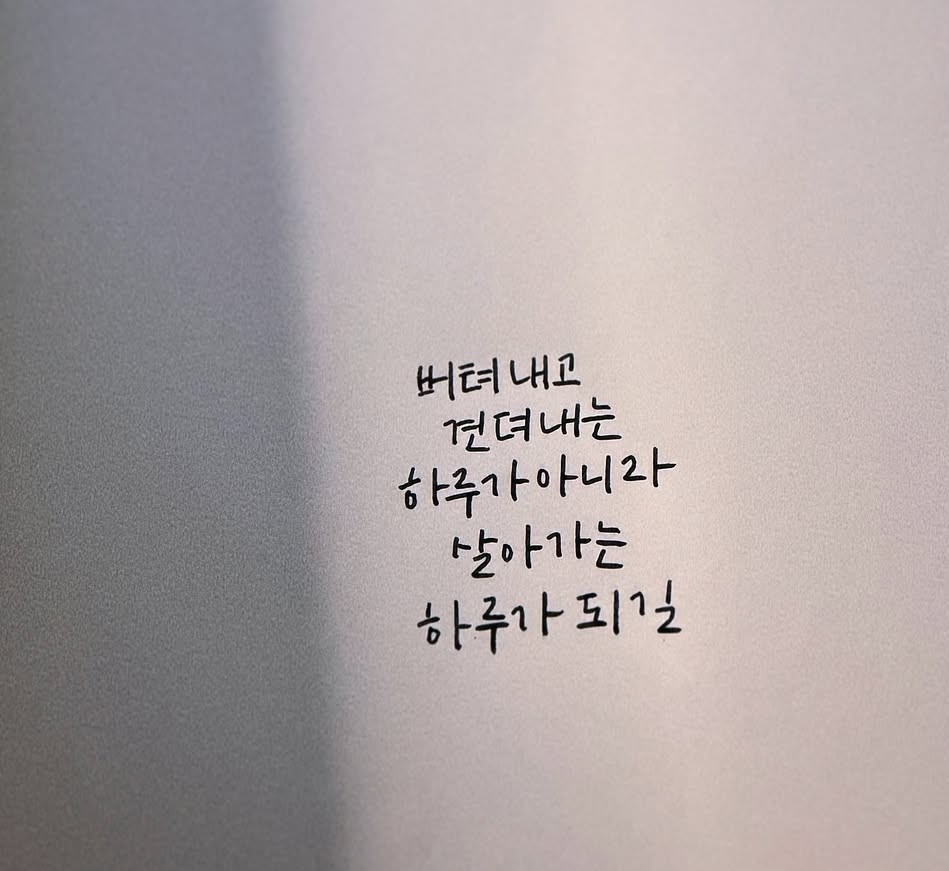 버텨 내고
견뎌 내는
하루가 아니라
살아가는
하루가 되길